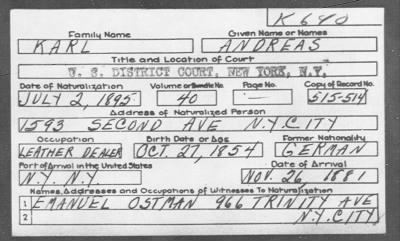 K640
Family Name Given Name or Names
KARL ANDREAS
Title and Location of Court
U. S. DISTRICT COURT, NEW YORK, N.Y.
Date of Naturalization Volume or Bundle No. Page No. Copy of Record No.
JULY 2, 1895 40 — 515-514
Address of Naturalized Person
1593 SECOND AVE N.Y. CITY
Occupation Birth Date or Age Former Nationality
LEATHER DEALER OCT. 27, 1854 GERMAN
Port of Arrival in the United States Date of Arrival
N.Y. N.Y NOV. 26, 1881
Names, Addresses and Occupations of Witnesses To Naturalization
1 EMANUEL OSTMAN 966 TRINITY AVE
2 N.Y. CITY